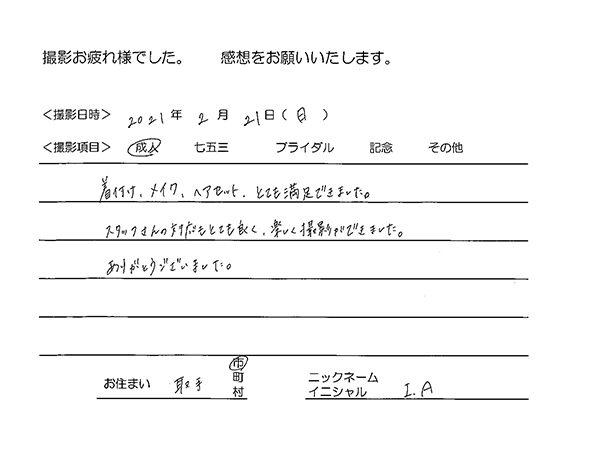 撮影お疲れ様でした。　感想をお願いいたします。
＜撮影日時＞ 2021年 2月 21日（日）
＜撮影項目＞ 成人 七五三 ブライダル 記念 その他
着付け、メイク、ヘアセット、とても満足できました。
スタッフさんの対応もとても良く、楽しく撮影ができました。
ありがとうございました。
お住まい 取手 市 町 村 ニックネーム イニシャル I.A